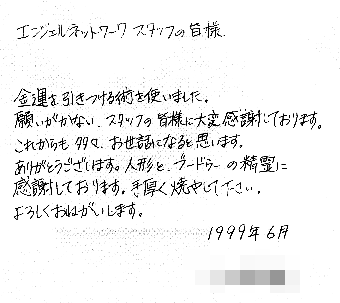 エンジェルネットワーク スタッフの皆様
金運を引きつける術を使いました。
願いがかない、スタッフの皆様に大変感謝しております。
これからも 多々、お世話になると思います。
ありがとうございます。人形と、ブードゥーの精霊に
感謝しております。手厚く焼やして下さい。
よろしくおねがいします。
1999年6月